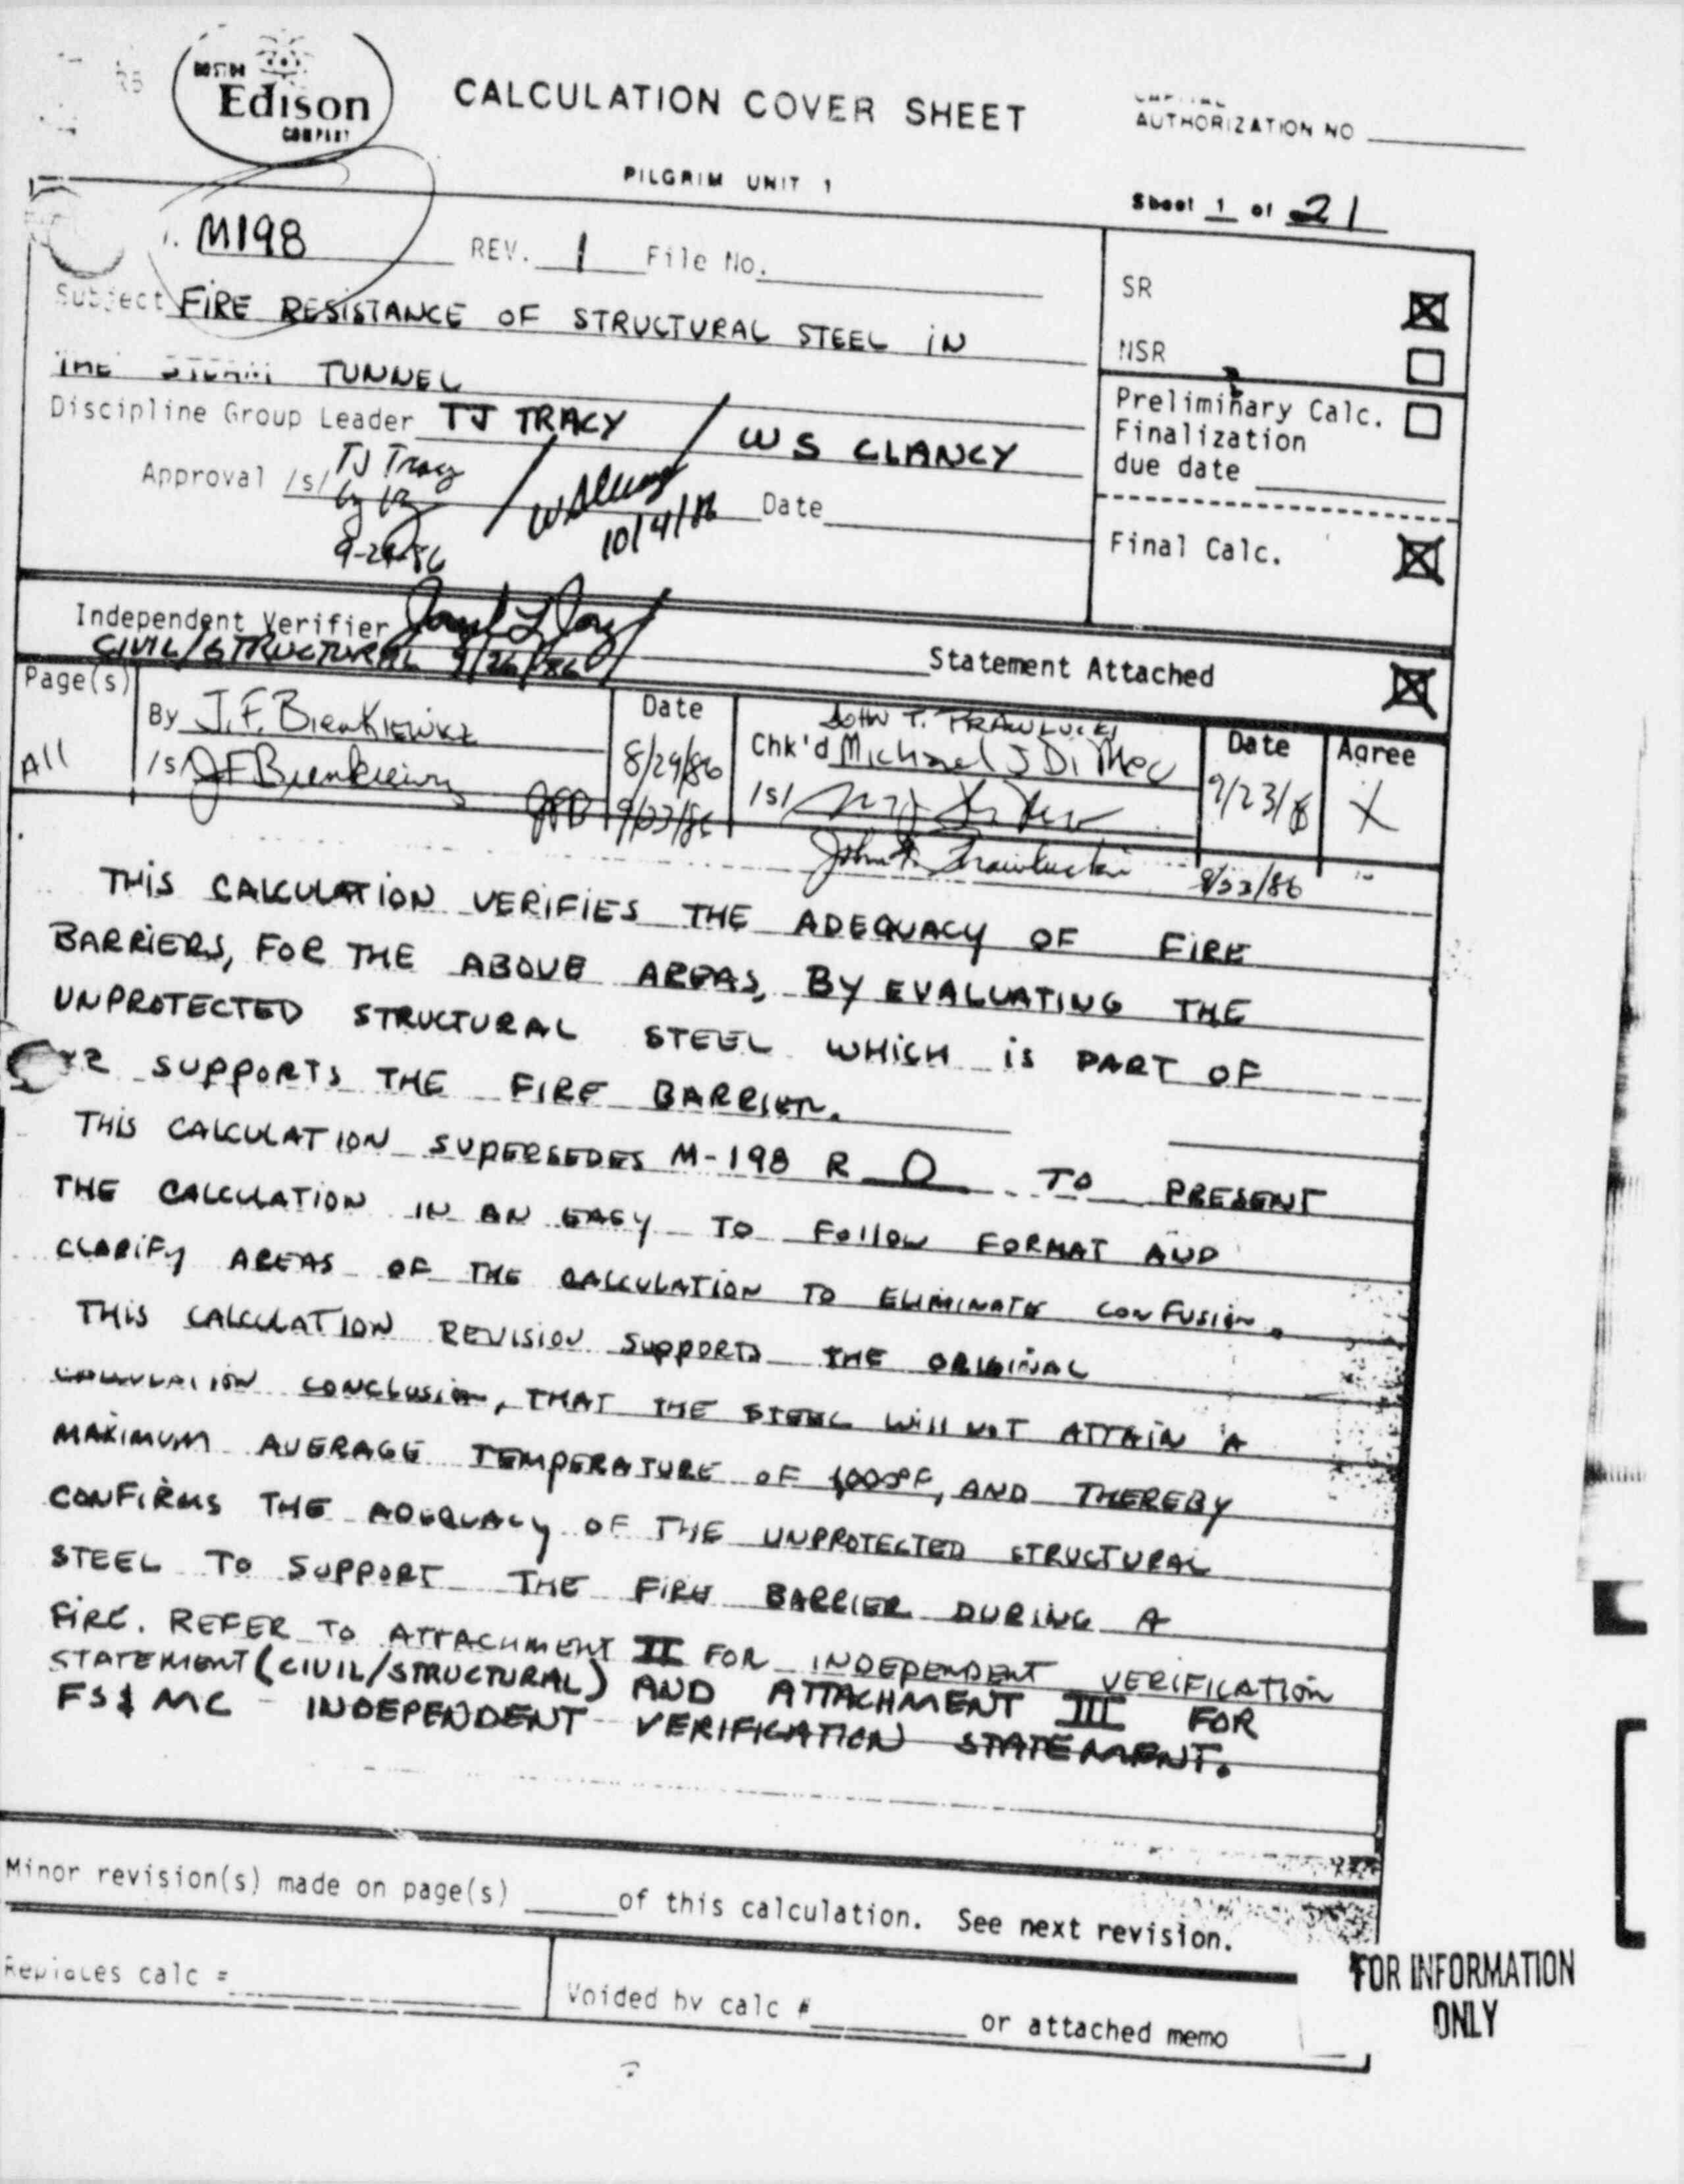 BOSTON
Edison
COMPANY
CALCULATION COVER SHEET
AUTHORIZATION NO
PILGRIM UNIT 1
Sheet 1 of 21
M198 REV. 1 File No.
SR
Subject FIRE RESISTANCE OF STRUCTURAL STEEL IN
NSR
THE STEAM TUNNEL
Discipline Group Leader TJ TRACY / WS CLANCY
Preliminary Calc.
Finalization
due date
Approval /s/ TJ Tracy / Date
10/4/86
Final Calc.
Independent Verifier
CIVIL/STRUCTURAL 9/26/86
Statement Attached
Page(s)
By J.F. Bienkiewicz
Date
JOHN T.
Chk'd Michael J Di Meo
Date
Agree
All
/s/ JF Bienkiewicz
8/29/86
/s/
9/23/86
X
JFB 9/23/86
John T. 9/23/86
THIS CALCULATION VERIFIES THE ADEQUACY OF FIRE
BARRIERS, FOR THE ABOVE AREAS, BY EVALUATING THE
UNPROTECTED STRUCTURAL STEEL WHICH IS PART OF
SUPPORTS THE FIRE BARRIER.
THIS CALCULATION SUPERSEDES M-198 R 0 TO PRESENT
THE CALCULATION IN AN EASY TO FOLLOW FORMAT AND
CLARIFY AREAS OF THE CALCULATION TO ELIMINATE CONFUSION.
THIS CALCULATION REVISION SUPPORTS THE ORIGINAL
CALCULATION CONCLUSION, THAT THE STEEL WILL NOT ATTAIN A
MAXIMUM AVERAGE TEMPERATURE OF 1000°F, AND THEREBY
CONFIRMS THE ADEQUACY OF THE UNPROTECTED STRUCTURAL
STEEL TO SUPPORT THE FIRE BARRIER DURING A
FIRE. REFER TO ATTACHMENT II FOR INDEPENDENT VERIFICATION
STATEMENT (CIVIL/STRUCTURAL) AND ATTACHMENT III FOR
FS& MC - INDEPENDENT VERIFICATION STATEMENT.
Minor revision(s) made on page(s) of this calculation. See next revision.
Replaces calc =
Voided by calc # or attached memo
FOR INFORMATION
ONLY